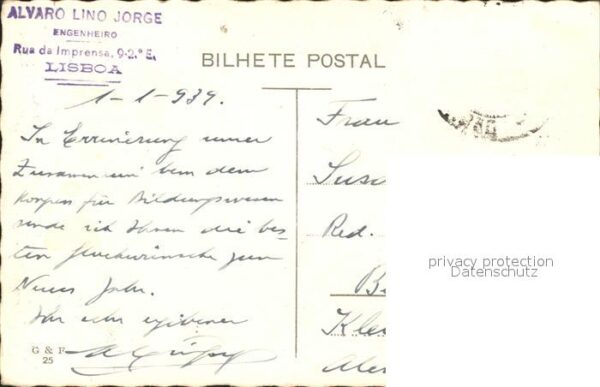 ALVARO LINO JORGE
ENGENHEIRO
Rua da Imprensa, 9-2.º E.
LISBOA
BILHETE POSTAL
1-1-939.
In Erinnerung unser
bem dem
Kongress für Bildungswesen
sende ich Ihnen die bes-
ten Glückwünsche zum
Neues Jahr.
Ihr sehr
G & F
25
Frau
Red.
privacy protection
Datenschutz